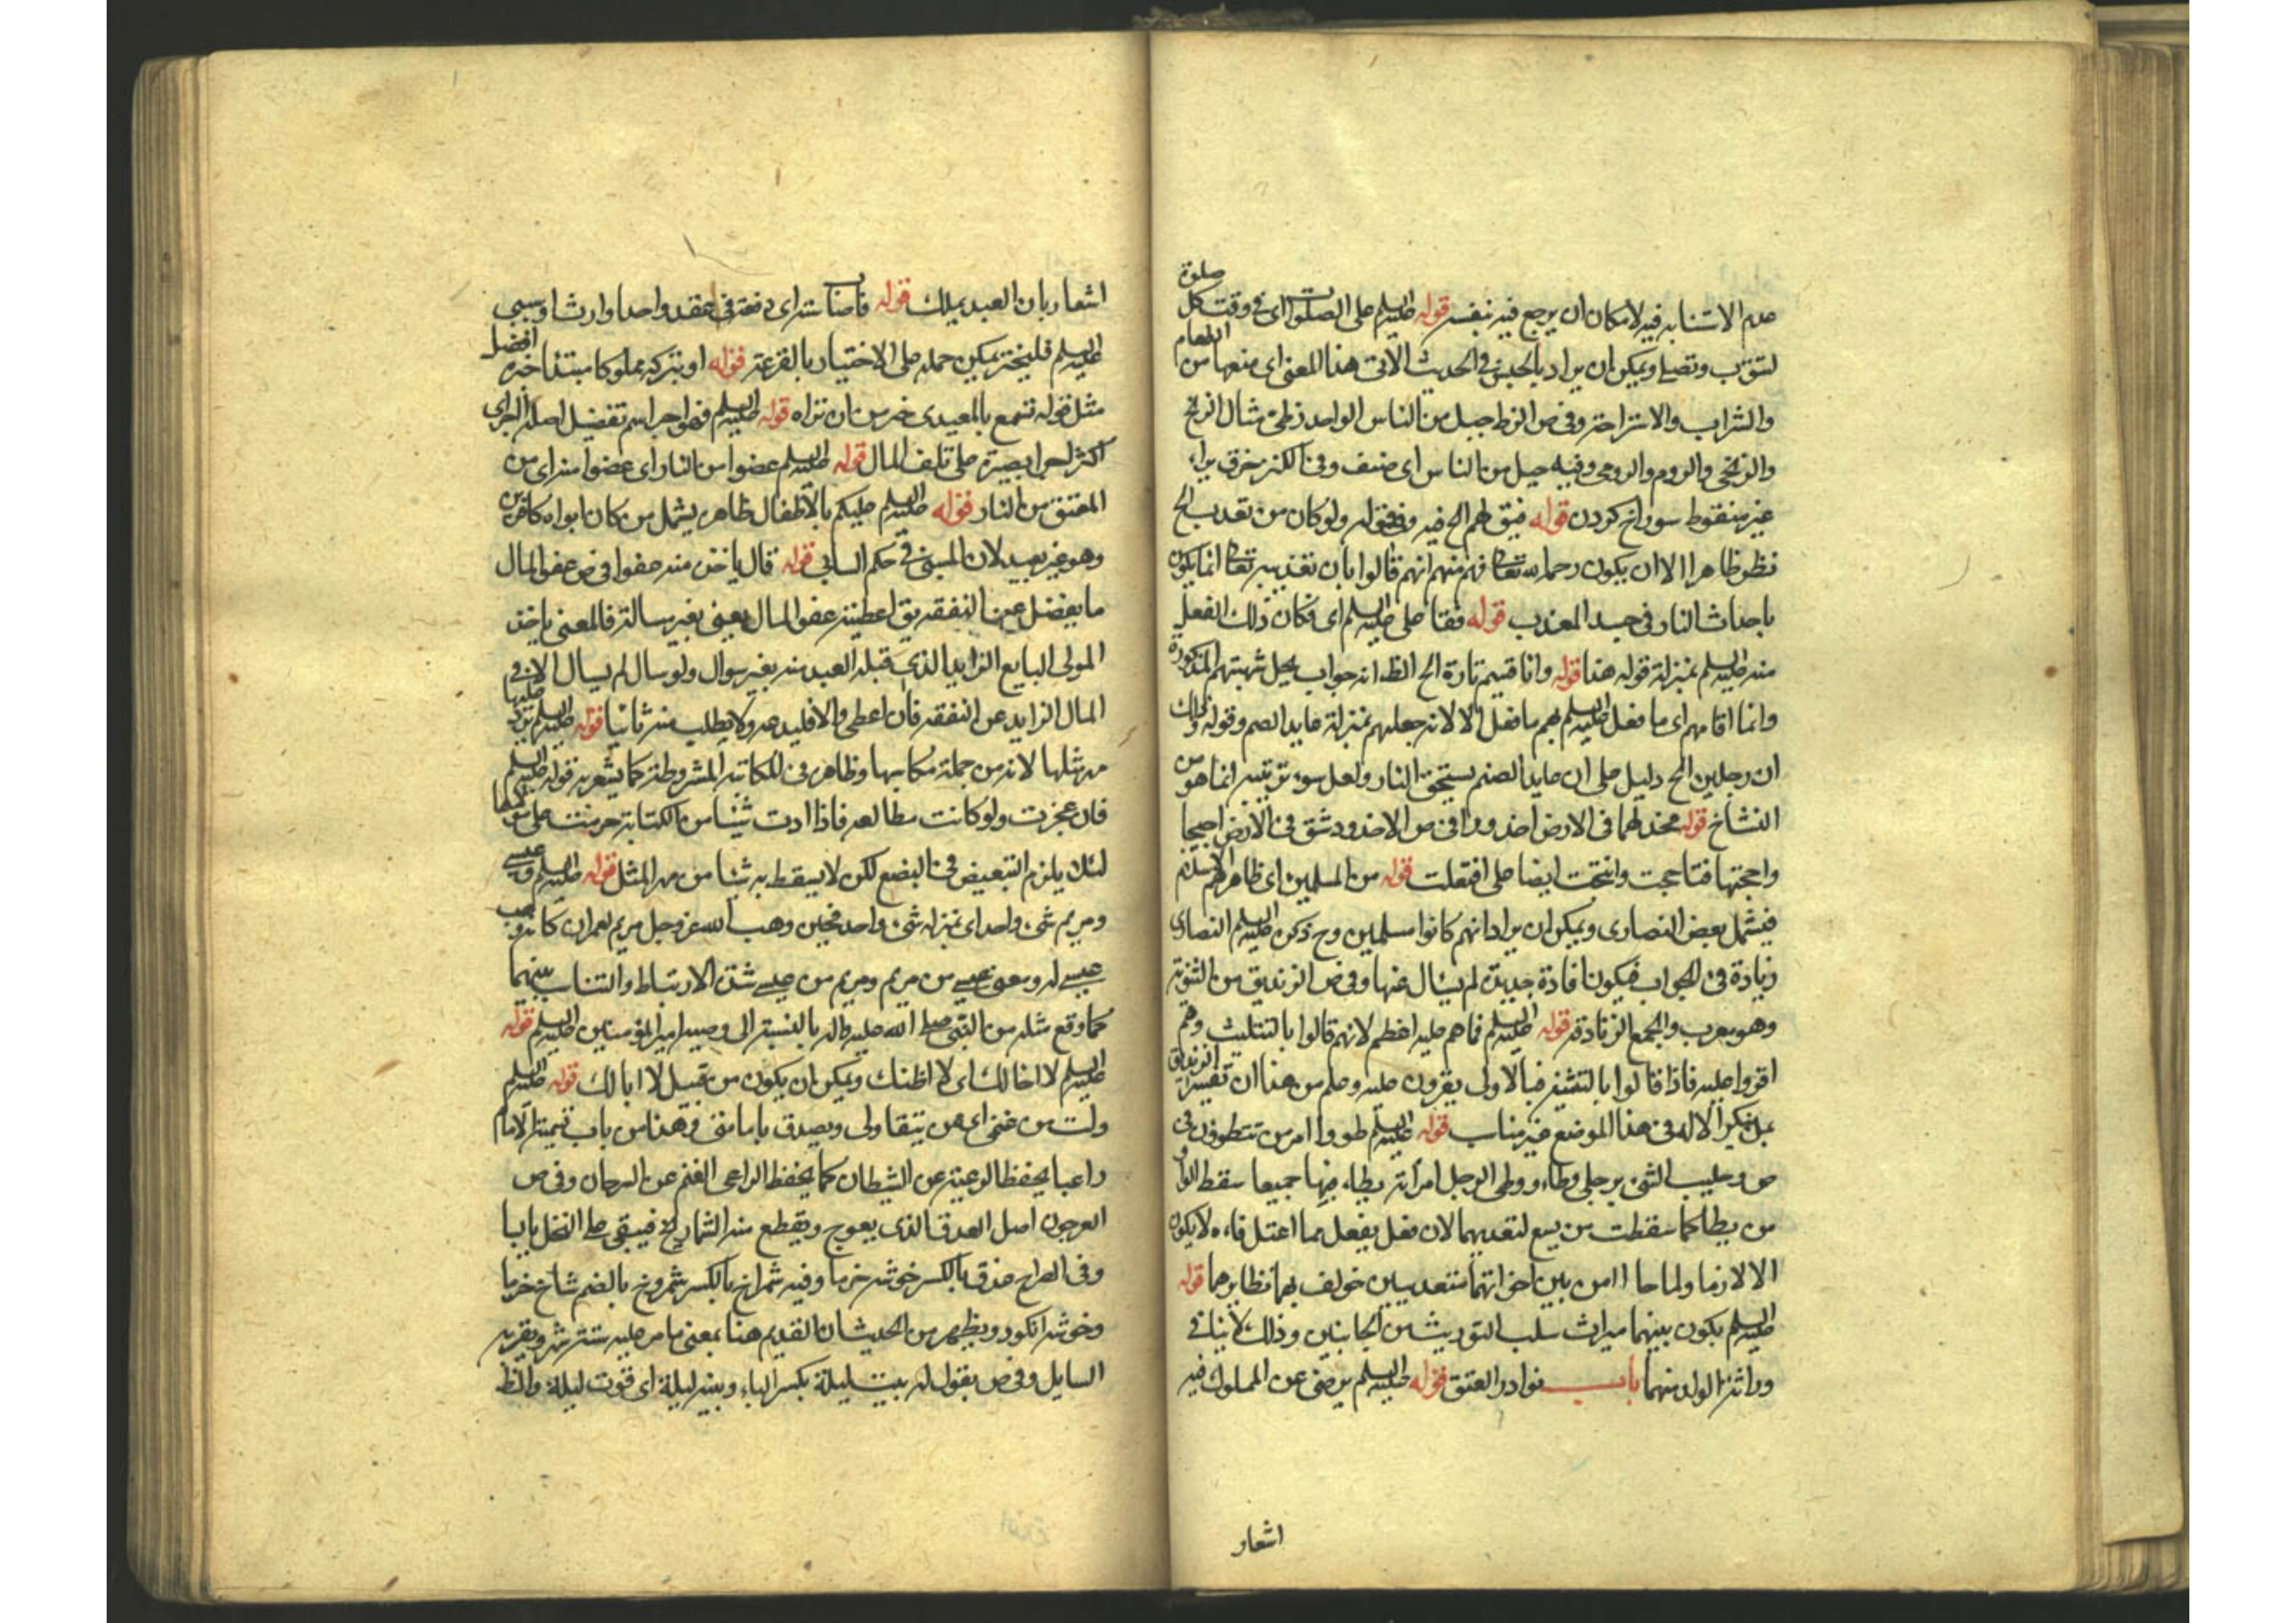 عدم الاستنابة فيه لامكان ان يرجع فيه بنفسه قوله عليه السلم على الصلوات اى فى وقت كل صلوة
لتتوب وتصلى ويمكن ان يراد بالحبس فى الحديث الآتى هذا المعنى اى منعها من الطعام
والشراب والاستراحة وفى ص الزط جيل من الناس الواحد زطى مثال الزنج
والزنجى والروم والرومى وفيه جيل من الناس اى صنف وفى الكنز خرق براء
غير منقوطه سوراخ كردن قوله فيق لهم الخ فيه وفى قوله ولو كان من تعذب الخ
نظر ظاهرا الا ان يكون رحمه الله تعالى فهم منهم انهم قالوا بان تعذيبه تعالى انما يكون
باحداث النار فى جسد المعذب قوله فقتا على عليه السلم اى فكان ذلك الفعل
منه عليه السلم بمنزلة قوله هذا قوله وانا قسيم تارة الخ الظ انه جواب يحل شبهتهم المذكورة
وانما اقامهم اى ما فعل عليه السلم بهم ما فعل الا لانه جعلهم بمنزلة عابد الصم وقوله وذلك
ان رجلين الخ دليل على ان عابد الصنم يستحق النار ولعل سوء ترتيبه انما هو من
النساخ قوله فخد لهما فى الارض اخدودا فى ص الاخدود شق فى الارض اججها
واججتها فتاججت وائتجت ايضا على افتعلت قوله من المسلمين اى ظاهرهم الاسلام
فيشمل بعض النصارى ويمكن ان يراد انهم كانوا مسلمين وح ذكره عليه السلم النصارى
زيادة فى الجواب فيكون افادة جديدة لم يسال عنها وفى ص الزنديق من الثنوية
وهو معرب والجمع الزنادقة قوله عليه السلم فما هم عليه اعظم لانهم قالوا بالتثليث وهم
اقروا عليه فاذا قالوا بالتثنية فبالاولى يقرون عليه وعلم من هذا ان تفسير الزنديق
بمنكر الاله فى هذا الموضع غير مناسب قوله عليه السلم طووا امر من تتطوون فى
ص وطيت الشئ برجلى وطاء ووطى الرجل امراته يطاء فيهما جميعا سقط الواو
من يطا كما سقطت من يسع لتعديهما لان فعل يفعل مما اعتل فاءه لا يكون
الا لازما ولما جاءا من بين اخواتهما متعديين خولف بهما نظايرهما قوله
عليه السلم يكون بينهما ميراث سلب التوريث من الجانبين وذلك لا ينافى
وراثة الولد منهما باب نوادر العتق قوله عليه السلم يرضى عن المملوك فيه
اشعار
اشعار بان العبد يملك قوله فاصناست اى دفعة فى عقد واحد او ارث او سبى
عليه السلم فليختر يمكن حمله على الاختيار بالقرعة قوله او بتركه مملوكا مبتدا خبره افضل
مثل قوله تسمع بالمعيدى خير من ان تراه قوله عليه السلم فهو اجر اسم تفضيل اصله اأجر اى
اكثر اجرا بصبره على تلف المال قوله عليه السلم عضوا من النار اى عضوا منه اى من
المعتق من النار قوله عليه السلم عليكم بالاطفال ظاهره يشمل من كان ابواه كافرين
وهو غير بعيد لان المسبى فى حكم السابى قوله قال ياخذ منه عفوا فى ص عفو المال
ما يفضل عن النفقه يق اعطيته عفو المال يعنى بغير مسالة فالمعنى ياخذ
المولى البايع الزايد الذى قبله العبد منه بغير سوال ولو سال لم يسال الا فى
المال الزايد عن النفقه فان اعطى والا فليدعه ولا يطلب منه ثانيا قوله عليه السلم يرد عليها
مهر مثلها لانه من جملة مكاسبها وظاهره فى المكاتبة المشروطة كما يشعر به قوله عليه السلم
فان عجزت ولو كانت مطالعه فاذا ادت شيئا من الكتابة حرمت على مولاها
لئلا يلزم التبعيض فى البضع لكن لا يسقط به شئيا من مهر المثل قوله عليه السلم وعيسى
ومريم شئ واحد اى بمنزله شئ واحد فحين وهب الله عز وجل مريم لعمران كانه وهب
عيسى له ومعنى عيسى من مريم ومريم من عيسى شدة الارتباط والتناسب بينهما
كما وقع مثله من النبى صلى الله عليه واله بالنسبة الى وصيه امير المؤمنين عليه السلم قوله
عليه السلم لا اخالك اى لا اظنك ويمكن ان يكون من قبيل لا ابا لك قوله عليه السلم
ولست من غنمى اى ممن يتقاولى ويصدق بامامتى وهذا من باب تسمية الامام
راعيا يحفظ الرعية عن الشيطان كما يحفظ الراعى الغنم عن السرحان وفى ص
العرجون اصل العذق الذى يعوج ويقطع منه الشماريخ فيبقى على النخل يابسا
وفى الصراح عذق بالكسر خوشه خرما وفيه شمراخ بالكسر شمروخ بالضم شاخ خرما
وخوشه انگور ويظهر من الحديث ان القديم هنا بمعنى ما مر عليه ستة اشهر ويقربه
السايل وفى ص يقول له بيت ليلة بكسر الباء وبيته ليلة اى قوت ليلة والظ